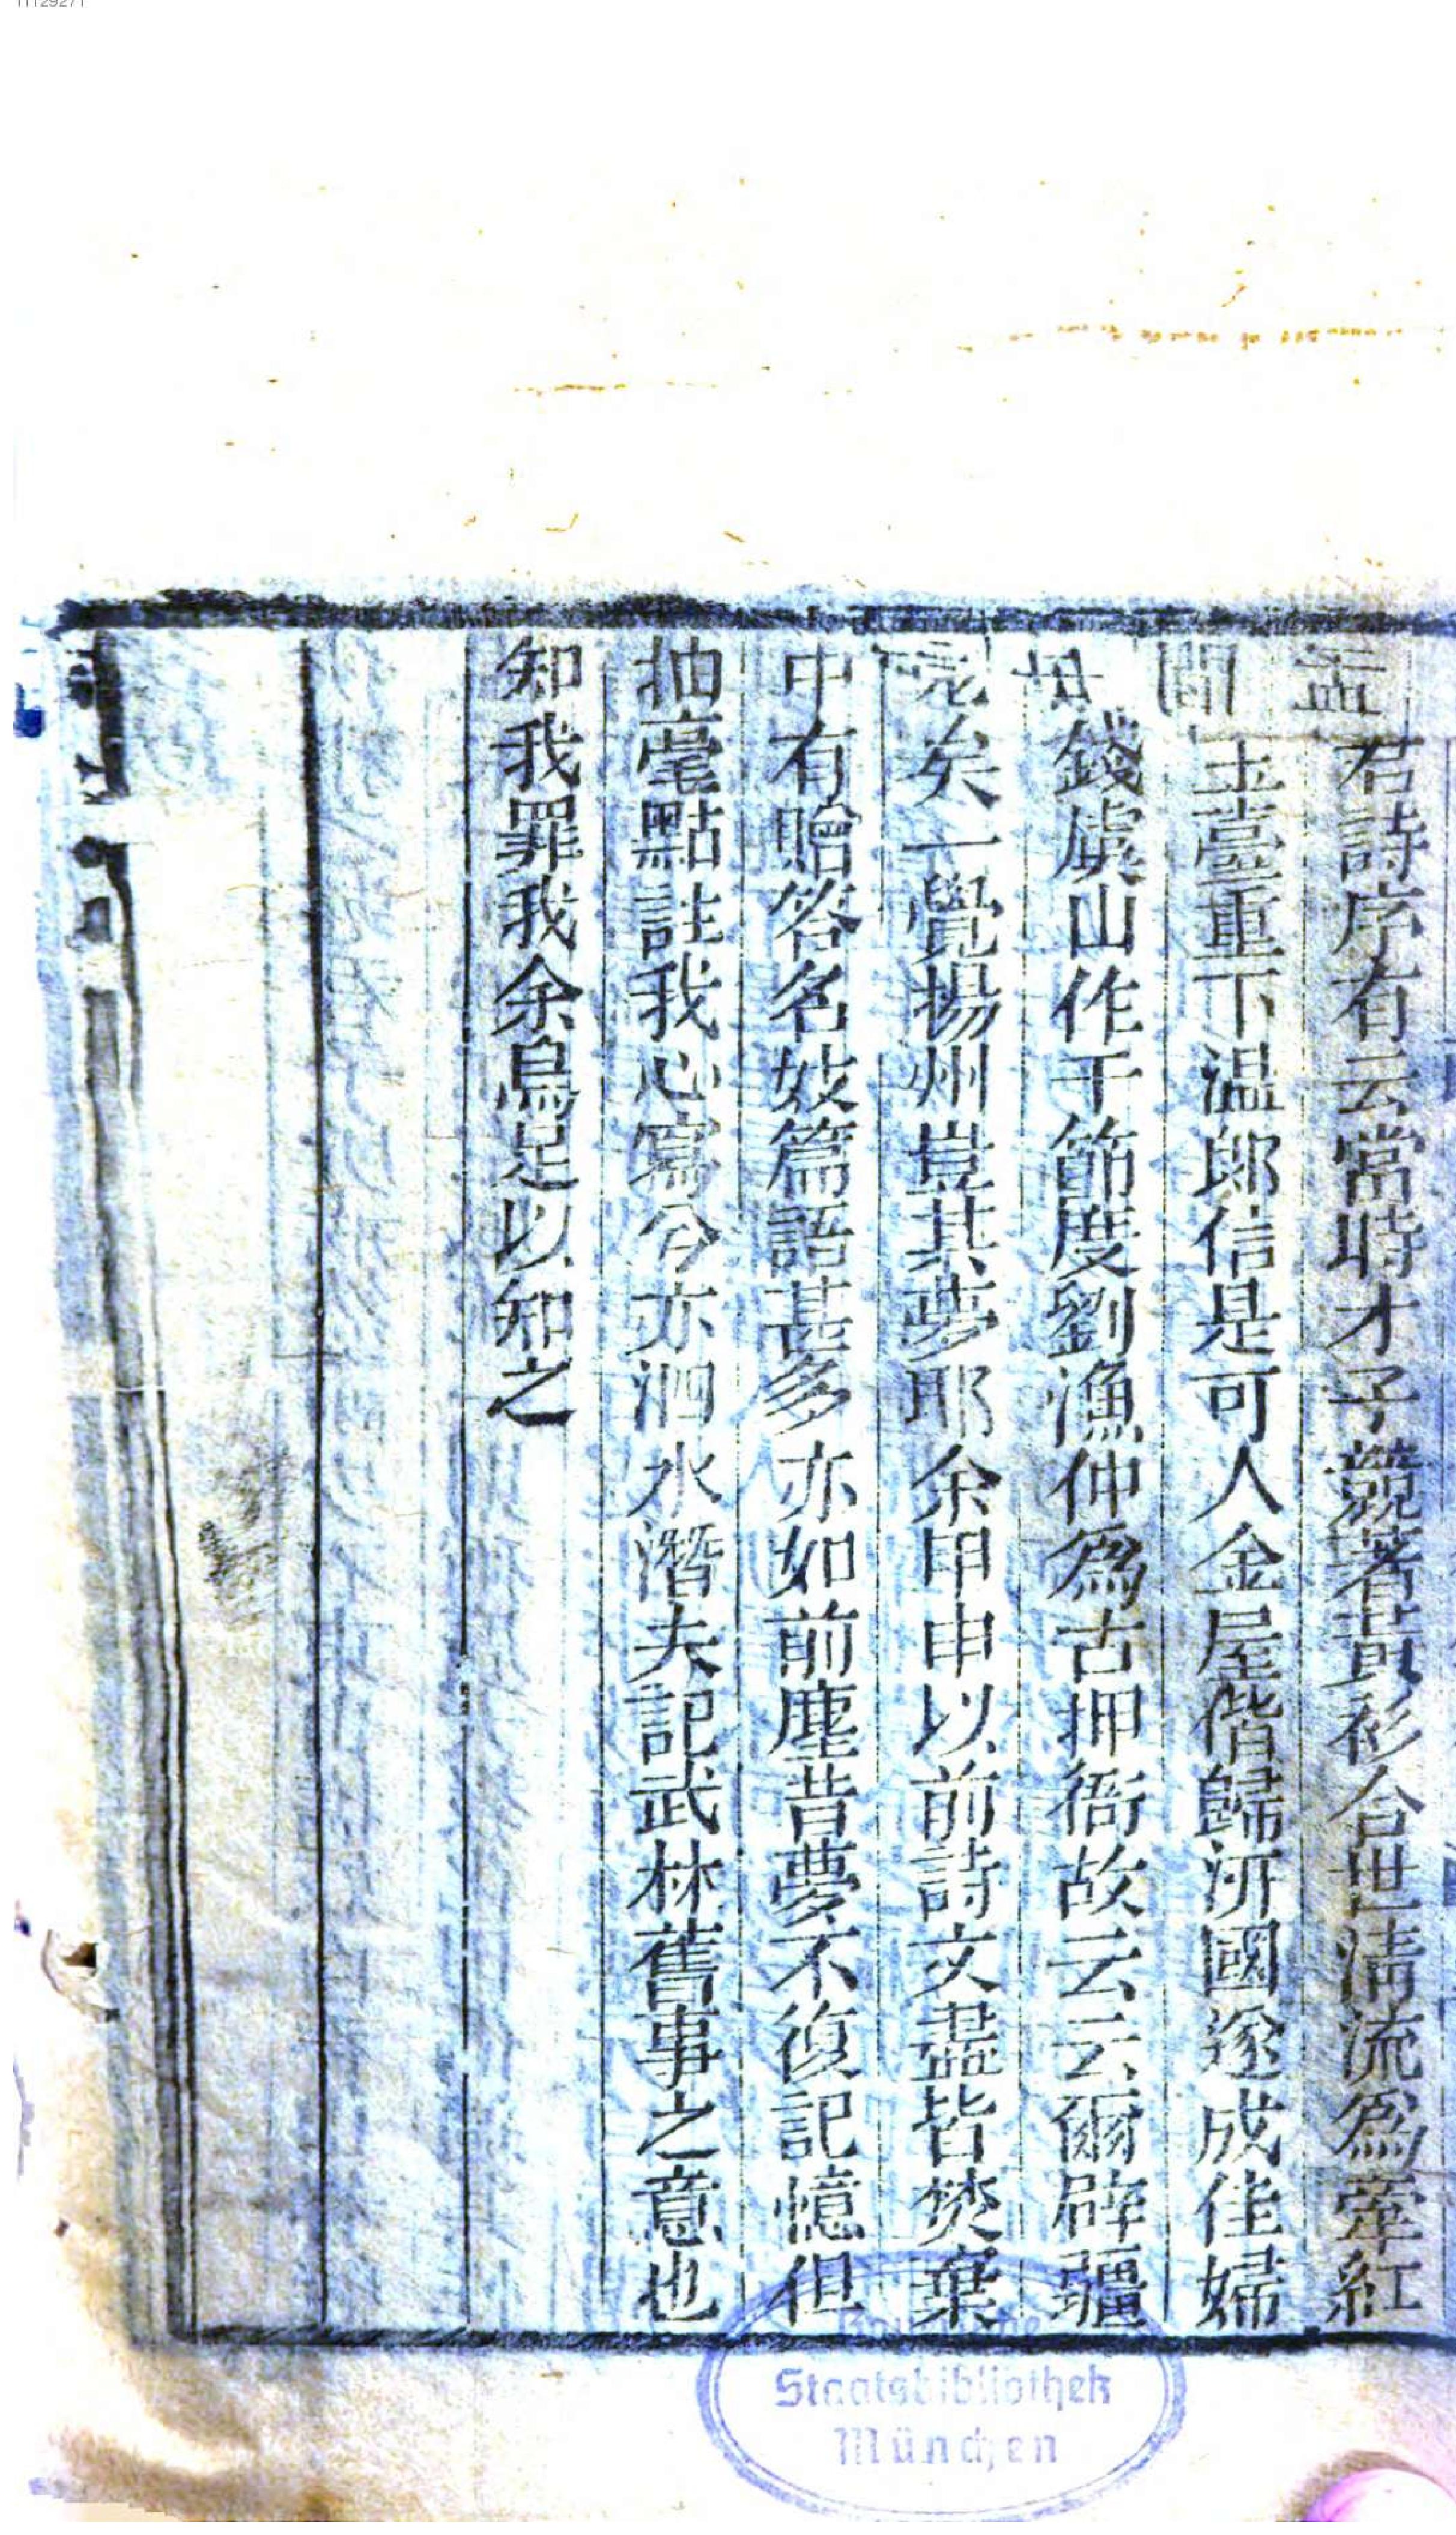 孟君詩序有云當時才子競著黃衫命世清流爲牽紅
間玉臺重下温郎信是可人金屋偕歸汧國遂成佳婦
錢虞山作于節度劉漁仲爲古押衙故云云爾辟疆
老矣一覺揚州豈其夢耶余甲申以前詩文盡皆焚棄
中有贈答名妓篇語甚多亦如前塵昔夢不復記憶但
抽毫點註我心寫兮亦泗水潛夫記武林舊事之意也
知我罪我余烏足以知之
Staatsbibliothek
München